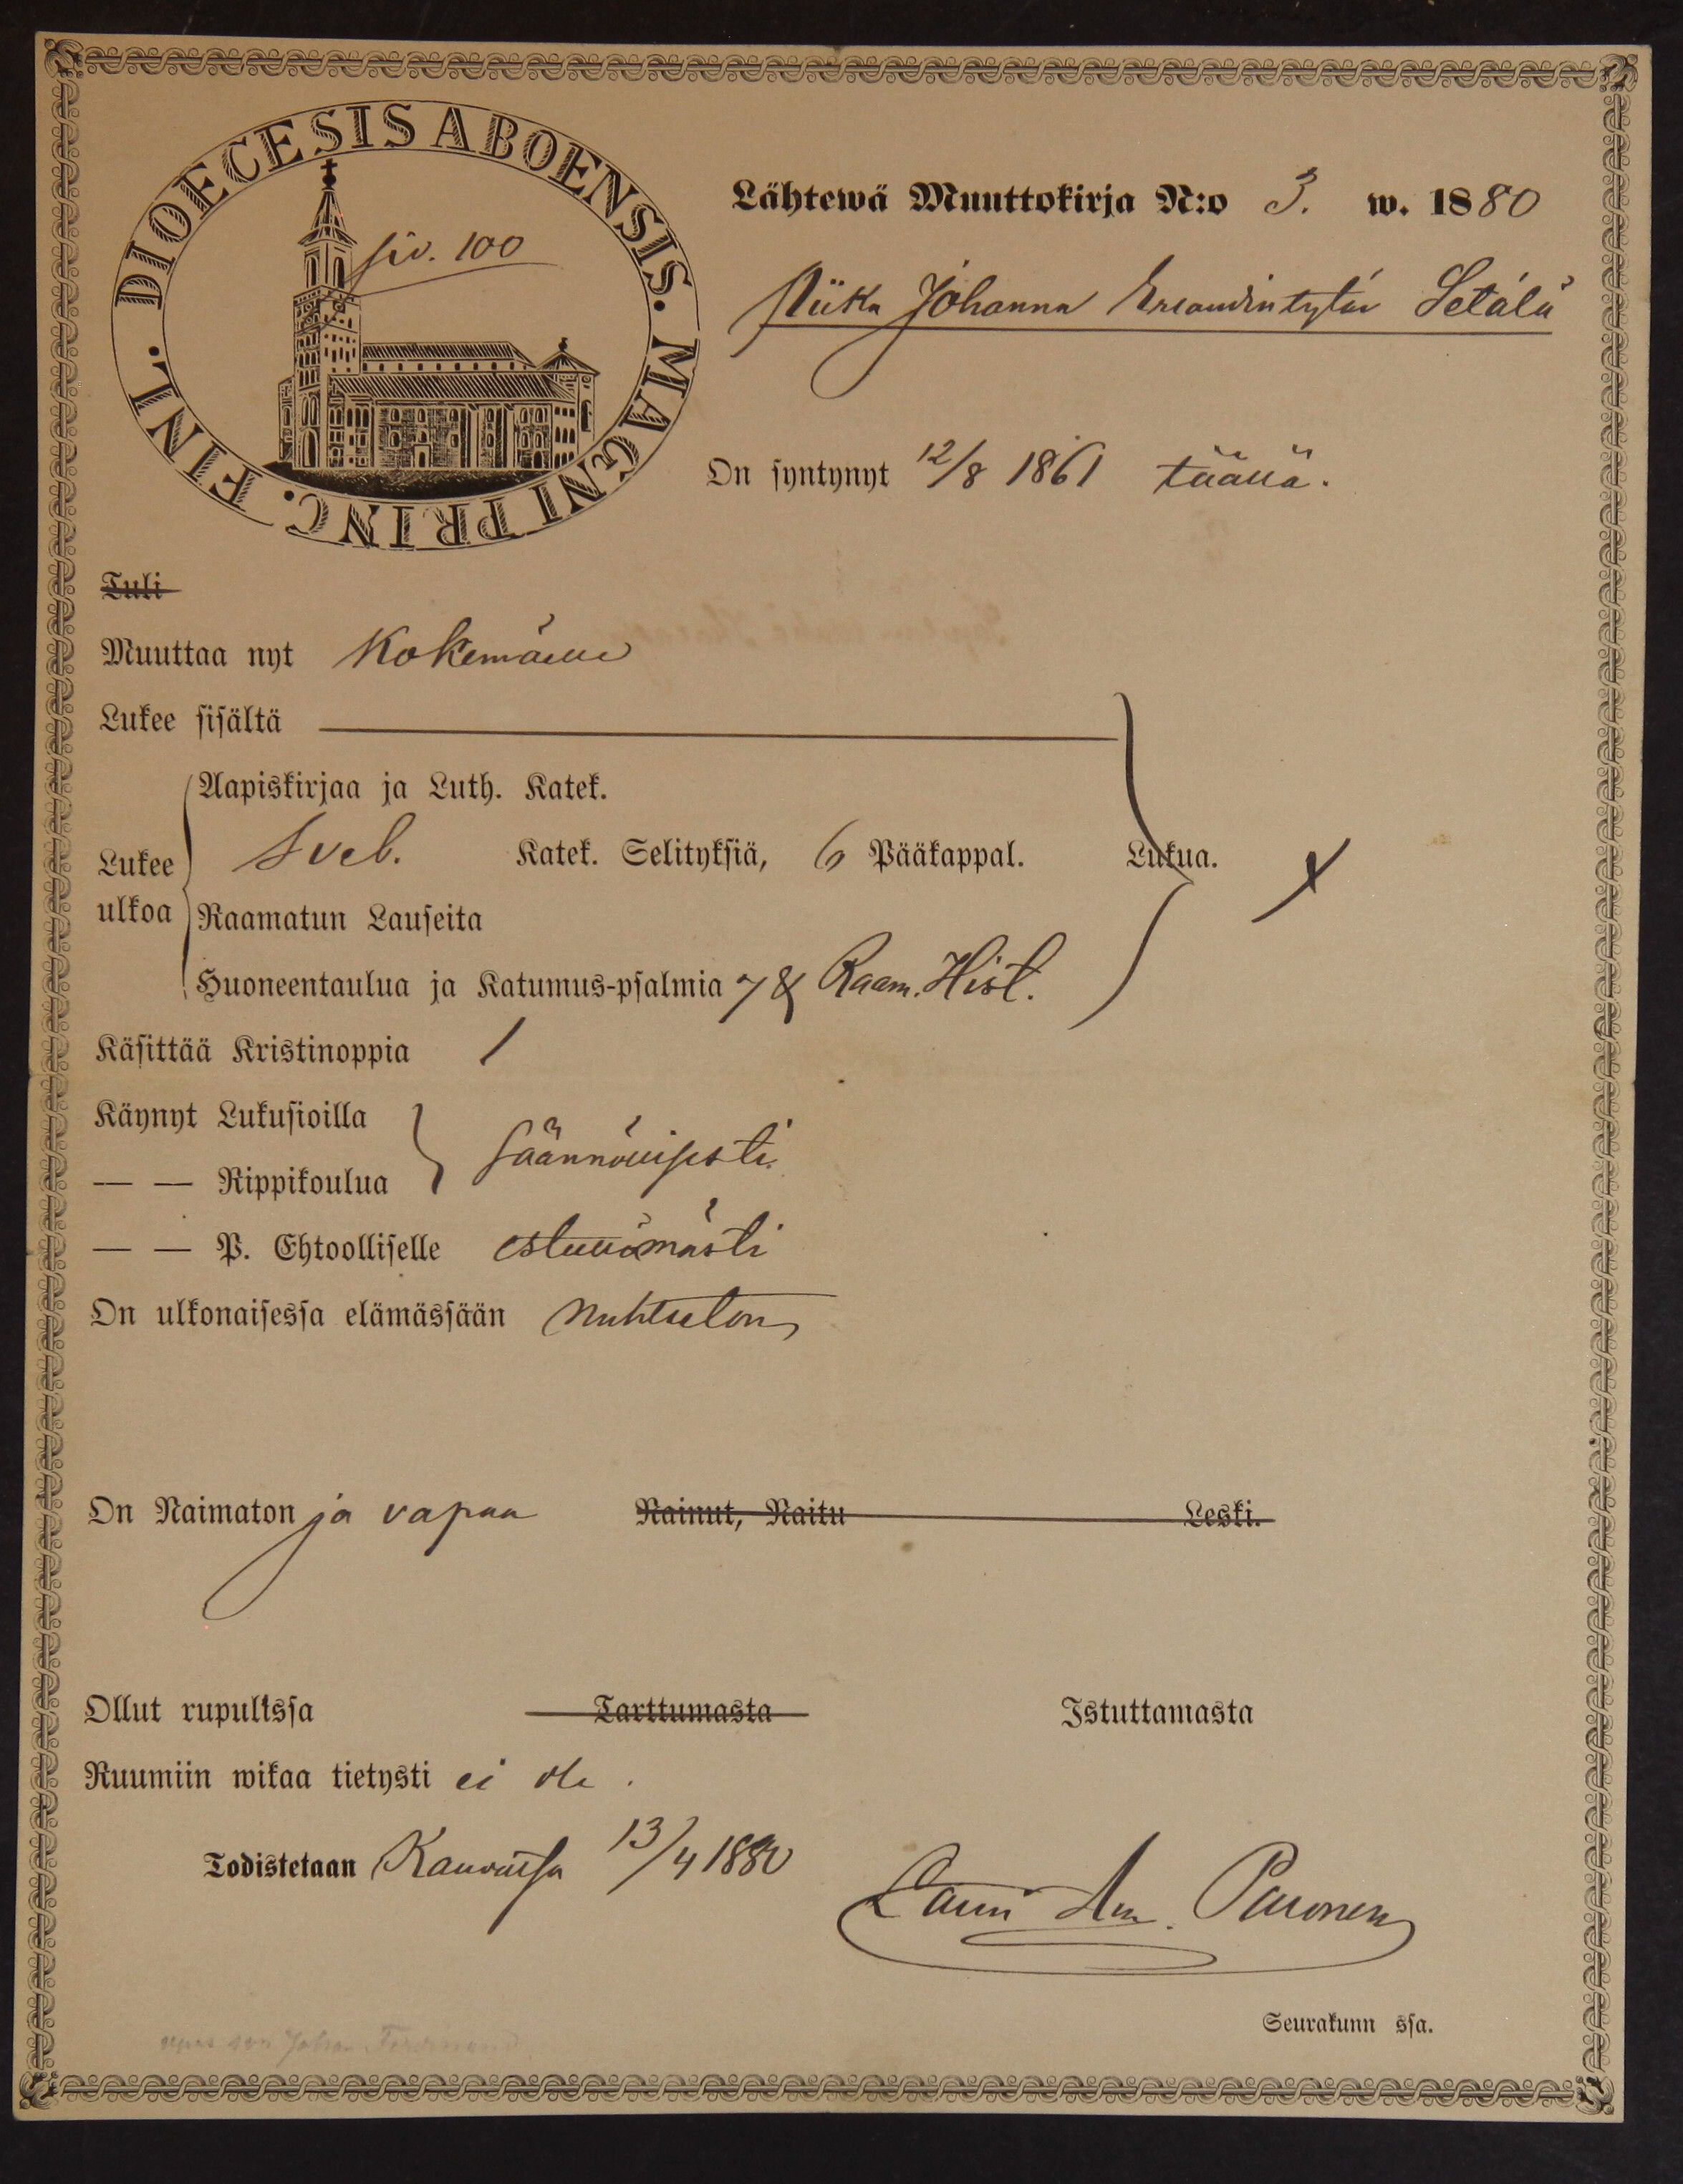 DIOECESIS ABOENSIS. MAGNI PRINC. FINL.
siv. 100
Lähtewä Muuttokirja N:o 3. w. 1880
Johanna Setälä
On syntynyt 12/8 1861 täällä.
Tuli
Muuttaa nyt Kokemäelle
Lukee sisältä
Aapiskirjaa ja Luth. Katek.
Lukee Sveb. Katek. Selityksiä, 6 Pääkappal. Lukua. X
ulkoa Raamatun Lauseita
Huoneentaulua ja Katumus-psalmia 7 & Raam. Hist.
Käsittää Kristinoppia 1
Käynyt Lukusioilla
säännöllisesti
— — Rippikoulua
— — P. Ehtoolliselle estellömästi
On ulkonaisessa elämässään nuhteeton
On Naimaton ja vapaa Nainut, Naitu Leski.
Ollut rupulissa Tarttumasta Istuttamasta
Ruumiin wikaa tietysti ei ole.
Todistetaan Kauvatsa 13/4 1880
Lauri Paronen
Seurakunn ssa.
son Johan Ferdinand